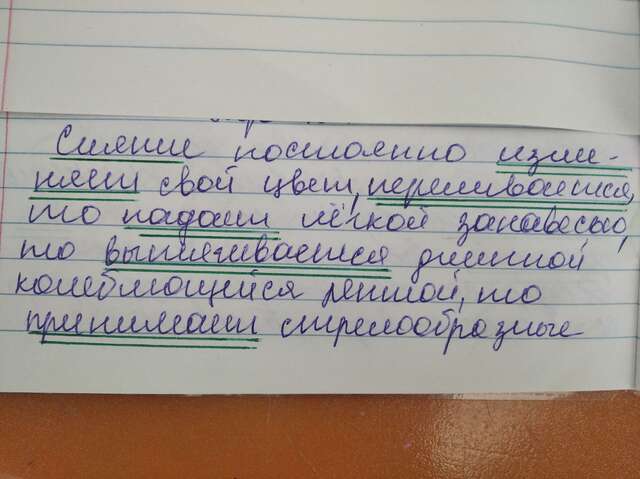 Сияние постоянно изме-
няет свой цвет, переливается,
то падает лёгкой занавесью,
то вытягивается длинной
колеблющейся лентой, то
принимает стрелообразные